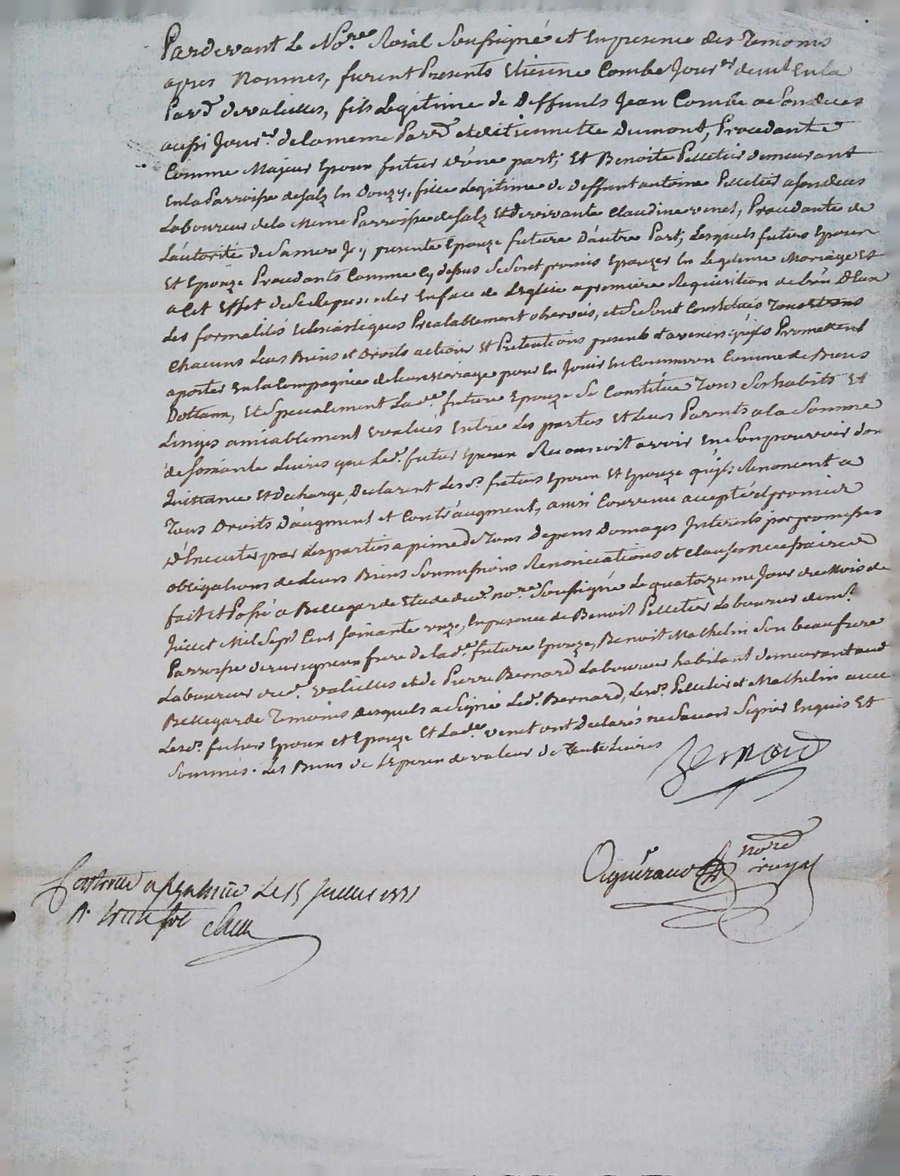 Pardevant Le No.re Roial Soussigné et En presence des Temoins
apres Nommes, furent Presents Etienne Combe Jour.er dem.t En la
Par.e de valeilles, fils Legitime de Deffunts Jean Combe
aussi Jour.er de la meme Par.e et d'Etiennette Dumont, Procedante
Comme Majeur Epoux futur d'une part; Et Benoite Pelletier demeurant
En la Parroisse de Salz En Donzy, fille Legitime de deffunt antoine Pelletier
Laboureur de la Meme Parroisse de Salz Et de vivante Claudine venet, Procedante de
L'autorité de Sa mere Jcy presente Epouze future D'autre Part; Lesquels futurs Epoux
Et Epouze Procedants Comme Cy dessus Se Sont promis Epouzer En Legitime Mariage Et
a Cet Effet de Se Representer En face de L'Eglise a premiere Requisition de L'un D'Eux
Les formalités Eclesiastiques Prealablement observées, et se Sont Constitués
Chacuns Leurs Biens et Droits action Et Pretentions presents et avenirs qu'ils Promettent
aporter En la Compagnie de Leur mariage pour En Jouir En Commun Comme de Biens
Dottaux, Et Specialement Lad.e future Epouze Se Constitue Tous Ses habits Et
Linges amiablement Evalués Entre Les parties Et Leurs Parents a la Somme
de soixante Livres que Led. futur Epoux Reconnoit avoir En Son pouvoir don
Quittance Et Decharge, Declarent Lesd. futurs Epoux Et Epouze qu'ils Renoncent a
Tous Droits D'augment et Contr'augment, ainsi Convenu accepté et promis
D'Executer par Les parties a peine de Tous Depens Domages Interests par promesses
obligations de Leurs Biens Soumissions Renonciations et clauses necessaires
fait et Passé a Bellegarde Etude du No.re Soussigné Le quatorzieme Jour du Mois de
Juillet Mil Sept Cent Soixante onze, En presence de Benoit Pelletier Laboureur dem.t
Parroisse de frere de Lad.e future Epouze, Benoit Mathelin Son beaufrere
Laboureur valeilles et de Pierre Bernard Laboureur habitant demeurant aud.
Bellegarde Temoins desquels a Signé Led. Bernard, Lesd. Pelletier et Mathelin avec
Lesd. futurs Epoux et Epouze Et Lad.e venet ont Declarés ne Savoir Signer Enquis Et
Sommés. Les Biens de L'Epoux de valeur de Livres
Bernard
No.re royal
Le 15 Juillet 1771